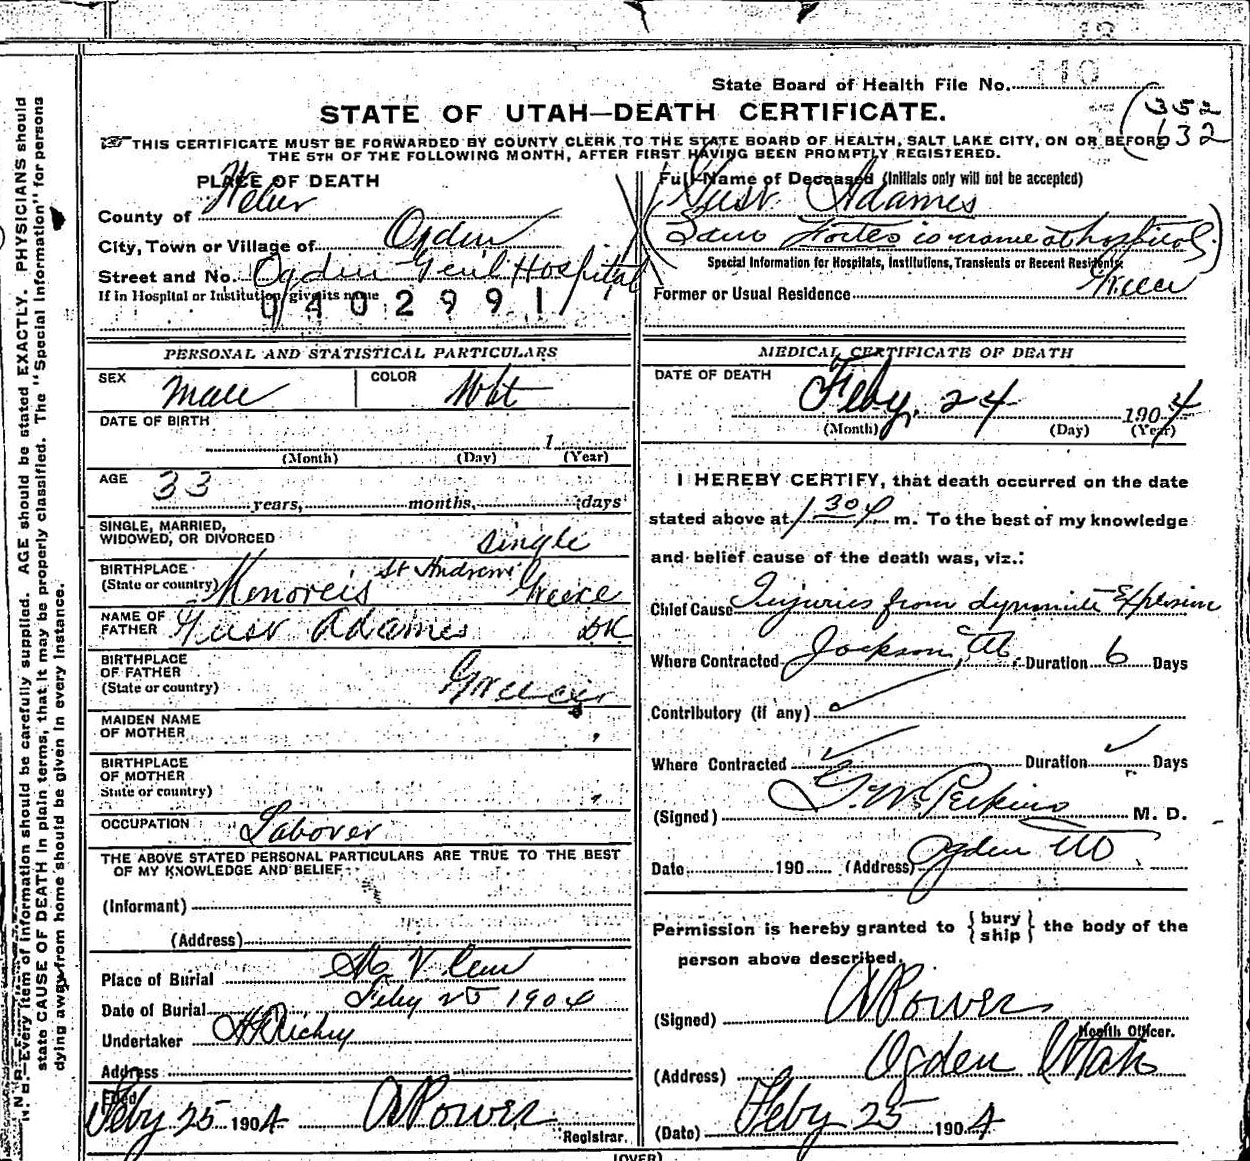 State Board of Health File No. 110
STATE OF UTAH—DEATH CERTIFICATE.
(352
632
THIS CERTIFICATE MUST BE FORWARDED BY COUNTY CLERK TO THE STATE BOARD OF HEALTH, SALT LAKE CITY, ON OR BEFORE
THE 5TH OF THE FOLLOWING MONTH, AFTER FIRST HAVING BEEN PROMPTLY REGISTERED.
N. B.—Every item of information should be carefully supplied. AGE should be stated EXACTLY. PHYSICIANS should
state CAUSE OF DEATH in plain terms, that it may be properly classified. The "Special Information" for persons
dying away from home should be given in every instance.
PLACE OF DEATH
County of Weber
City, Town or Village of Ogden
Street and No. Ogden Genl Hospital
If in Hospital or Institution, give its name
0402991
Full Name of Deceased (Initials only will not be accepted)
Gust Adames
(Sam Fortes is name at hospital)
Special Information for Hospitals, Institutions, Transients or Recent Residents.
Former or Usual Residence Greece
PERSONAL AND STATISTICAL PARTICULARS
SEX Male
COLOR Wht
DATE OF BIRTH
1
(Month) (Day) (Year)
AGE 33 years, months, days
SINGLE, MARRIED,
WIDOWED, OR DIVORCED Single
BIRTHPLACE
(State or country) St Andrews Greece
NAME OF
FATHER Gust Adames D.K.
BIRTHPLACE
OF FATHER
(State or country)
MAIDEN NAME
OF MOTHER
BIRTHPLACE
OF MOTHER
State or country)
OCCUPATION Laborer
THE ABOVE STATED PERSONAL PARTICULARS ARE TRUE TO THE BEST
OF MY KNOWLEDGE AND BELIEF
(Informant)
(Address)
Place of Burial Mt V Cem
Date of Burial Feby 25 1904
Undertaker Richey
Address
Filed
Feby 25 1904 Power
Registrar.
MEDICAL CERTIFICATE OF DEATH
DATE OF DEATH
Feby. 24 1904
(Month) (Day) (Year)
I HEREBY CERTIFY, that death occurred on the date
stated above at 1 30 P m. To the best of my knowledge
and belief cause of the death was, viz.:
Chief Cause Injuries from dynamite Explosion
Where Contracted Jackson, Ut. Duration 6 Days
Contributory (if any)
Where Contracted Duration Days
(Signed) G. W. Perkins M. D.
Date 190 (Address) Ogden Ut
Permission is hereby granted to {bury ship} the body of the
person above described.
(Signed) Power
Health Officer.
(Address) Ogden Utah
(Date) Feby 25 1904
(OVER)